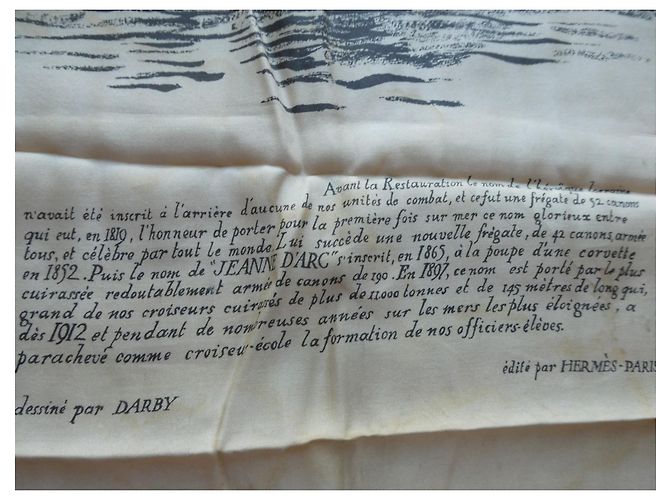 Avant la Restauration le nom de l'héroïque Lorraine
n'avait été inscrit à l'arrière d'aucune de nos unités de combat, et ce fut une frégate de 52 canons
qui eut, en 1819, l'honneur de porter pour la première fois sur mer ce nom glorieux entre
tous, et célèbre par tout le monde. Lui succède une nouvelle frégate, de 42 canons, armée
en 1852. Puis le nom de "JEANNE D'ARC" s'inscrit, en 1865, à la poupe d'une corvette
cuirassée redoutablement armée de canons de 190. En 1897, ce nom est porté par le plus
grand de nos croiseurs cuirassés de plus de 11.000 tonnes et de 145 mètres de long qui,
dès 1912 et pendant de nombreuses années sur les mers les plus éloignées, a
parachevé comme croiseur-école la formation de nos officiers-élèves.
édité par HERMÈS-PARIS
dessiné par DARBY